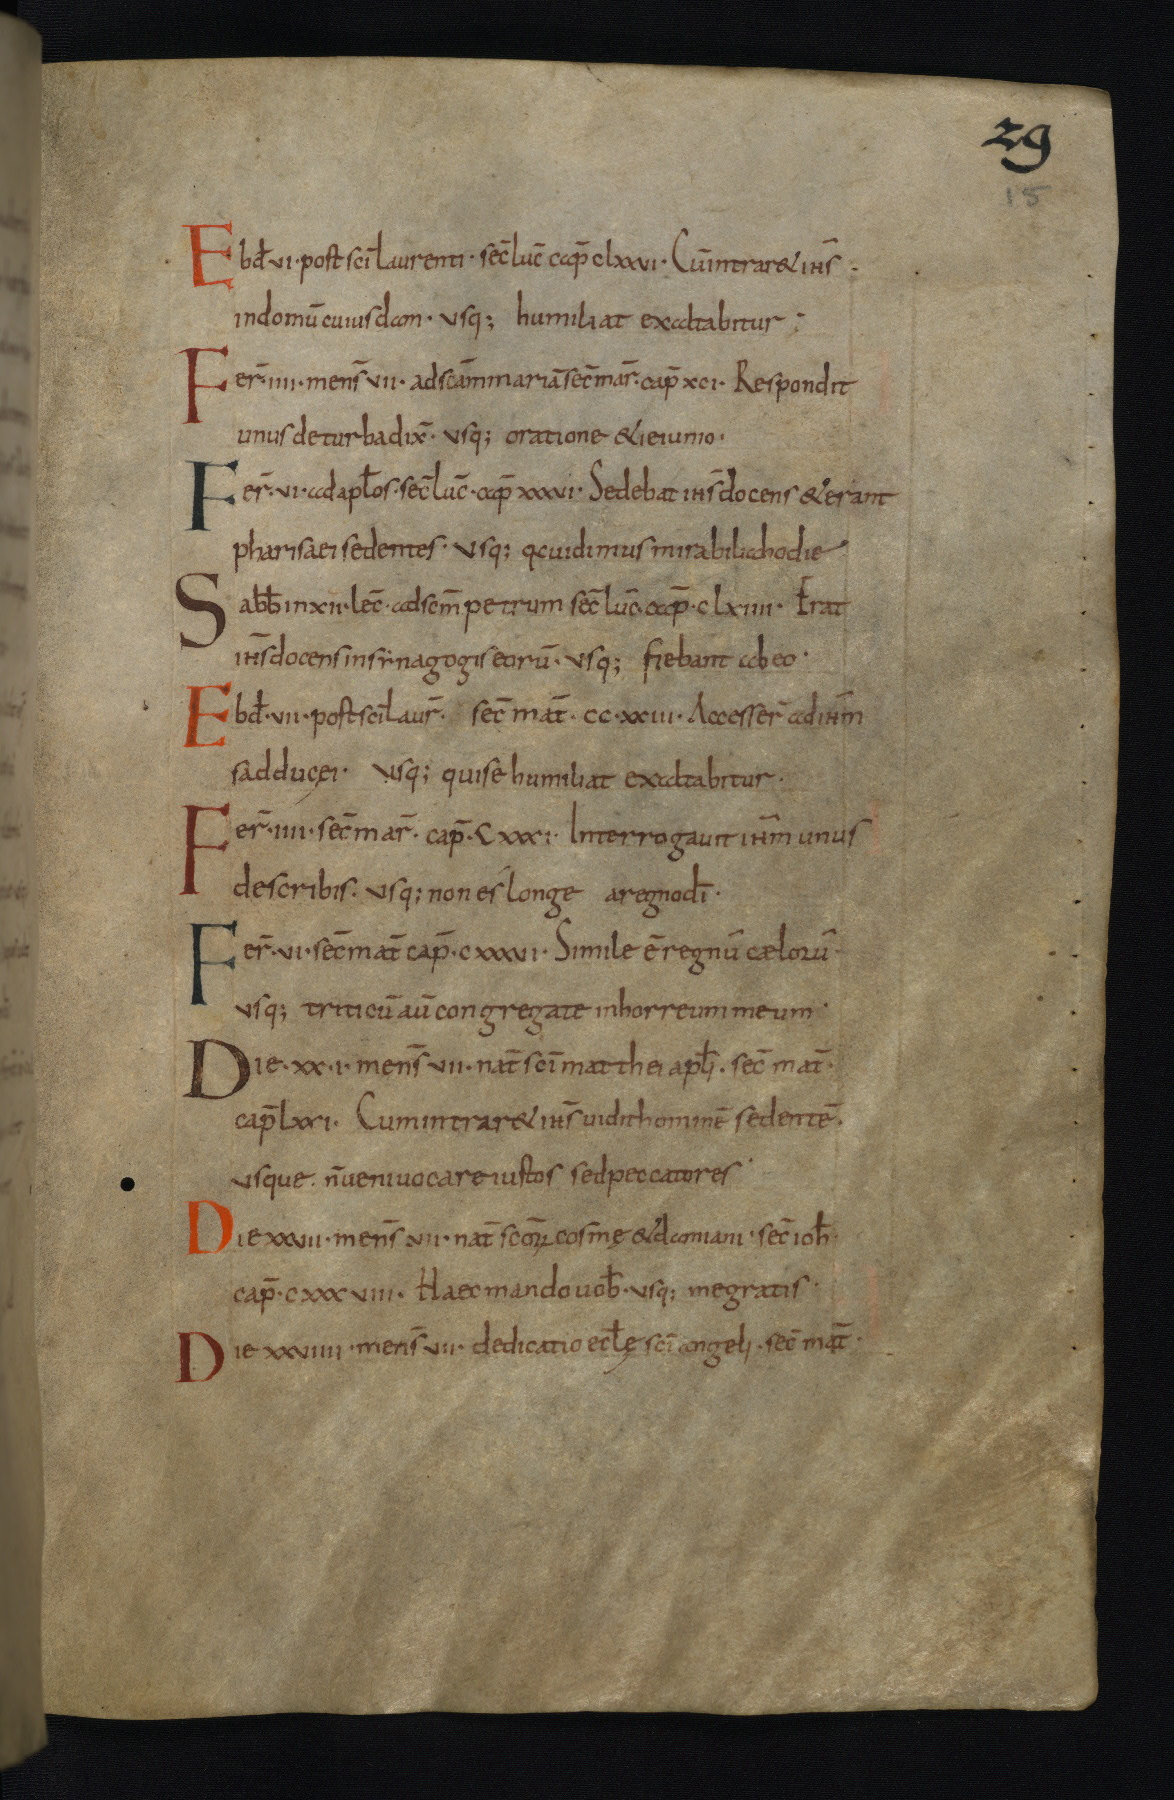 29
15
Ebđ·vi·post sci̅ laurenti· sec̅ luc̅ cap̅ clxxvi· Cu̅ intrar& ih̅s·
in domu̅ cuiusdam· usq; humiliat exaltabitur;
Fer̅·iiii·mens̅ vii· ad sca̅m maria̅ sec̅ mar̅·cap̅ xci· Respondit
unus de turba dix̅· usq; oratione & ieiunio·
Fer̅·vi·ad apłos·sec̅ luc̅·cap̅ xxxvi· Sedebat ih̅s docens & erant
pharisaei sedentes· usq; q̶a uidimus mirabilia hodie
Sabb̅ in xii·lec̅·ad scm̅ petrum sec̅ luc̅·cap̅·clxiiii· Erat
ih̅s docens in synagogis eoru̅· usq; fiebant ab eo·
Ebđ·vii·post sci̅ laur̅· sec̅ mat̅·cc·xxiii· Accesser̅ ad ih̅m
sadducęi· usq; qui se humiliat exaltabitur·
Fer̅·iiii·sec̅ mar̅· cap̅·Cxxxi· Interrogauit ih̅m unus
de scribis· usq; non es longe a regno di̅·
Fer̅·vi·sec̅ mat̅ cap̅·cxxxvi· Simile e̅ regnu̅ cæloru̅
usq; triticu̅ au̅ congregate in horreum meum·
Die·xx·i·mens̅ vii·nat̅ sci̅ matthei apłi·sec̅ mat̅·
cap̅ lxxi· Cum intrar& ih̅s uidit homine̅ sedente̅·
usque· n̅ ueni uocare iustos sed peccatores·
Die xxvii·mens̅ vii·nat̅ scoꝝ cosmę & damiani·sec̅ ioh̅·
cap̅·cxxxviii· Haec mando uob̅·usq; me gratis·
Die xxviiii·mens̅ vii· dedicatio ecłę sci̅ angeli·sec̅ mat̅·